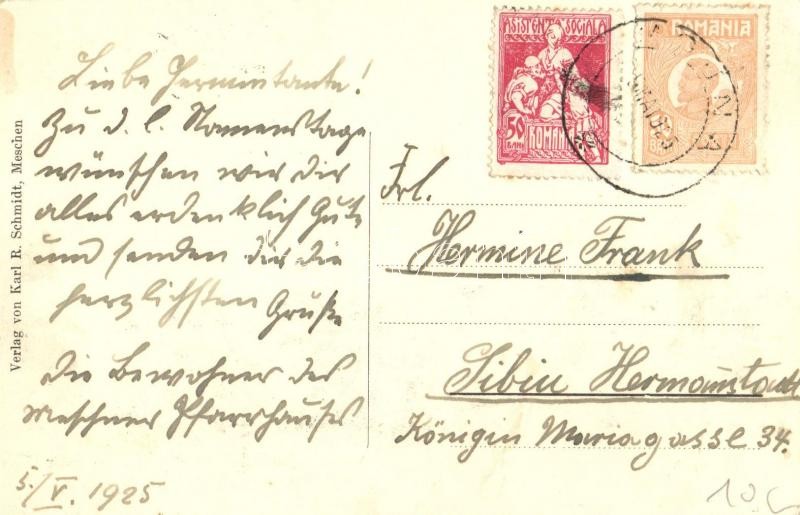 Verlag von Karl R. Schmidt, Meschen
Liebe Hermintante!
Zu d. l. Namenstage
wünschen wir dir
alles erdenklich Gute
und senden dir die
herzlichsten Grüße
die Bewohner des
Meschner Pfarrhauses
5./V. 1925
ASISTENȚA SOCIALA
50
BANI
ROMANIA
ROMANIA
Frl.
Hermine Frank
Sibiu Hermannstadt
Königin Mariagasse 34.